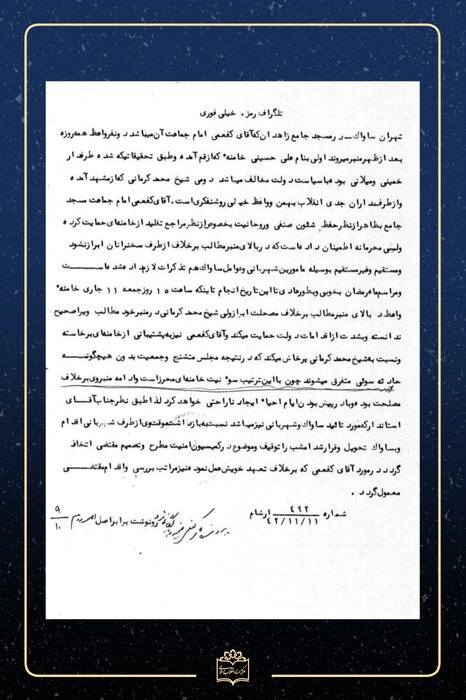 تلگراف رمز . خیلی فوری
تهران ساواك ــ در مسجد جامع زاهدان که آقای کفعمی امام جماعت آن میباشد دو نفر واعظ همه روزه
بعد از ظهر منبر میروند اولی بنام علی حسینی خامنه که از قم آمده و طبق تحقیقاتیکه شده طرفدار
خمینی و میلانی بوده با سیاست دولت مخالف میباشد دومی شیخ محمد کرمانی که از مشهد آمده
و از طرفداران جدی انقلاب بهمن و واعظ خیلی روشنفکری است. آقای کفعمی امام جماعت مسجد
جامع بظاهر از نظر حفظ شئون صنفی و روحانیت بخصوص از نظر مراجع تقلید از خامنه‌ای حمایت کرده
ولیسی محرمانه اطمینان داده است که در بالای منبر مطالب برخلاف از طرف سخنرانان ابراز نشود
و مستقیم و غیر مستقیم بوسیله مامورین شهربانی و عوامل ساواك هم تذکرات لازم داده شده است
و مراسم ماه رمضان بخوبی و بطور عادی تا این تاریخ انجام تا اینکه ساعت ۱۵ روز جمعه ۱۱ جاری خامنه
واعظ در بالای منبر مطالب برخلاف مصلحت ابراز ولی شیخ محمد کرمانی در منبر خود مطالب ویرا صحیح
ندانسته و بشدت از اقدامات دولت حمایت میکند و آقای کفعمی نیز به پشتیبانی از خامنه‌ای برخاسته
و نسبت به شیخ محمد کرمانی پرخاش میکند که در نتیجه مجلس متشنج و جمعیت بدون هیچگونــه
حادثه سوئی متفرق میشوند چون با این ترتیب سوء نیت خامنه‌ای محرز است و ادامه منبر وی برخلاف
مصلحت بوده و باد رپیش بودن ایام احیاء ایجاد ناراحتی خواهد کرد لذا طبق نظر جناب آقــای
استاندار که مورد تائید ساواك و شهربانی نیز میباشد نسبت به بازداشت موقت وی از طرف شهربانی اقدام
و بساواك تحویل و قرار شد امشب را توقیف و موضوع در کمیسیون امنیت مطرح و تصمیم مقتضی اتخاذ
گردد در مورد آقای کفعمی که برخلاف تعهد خویش عمل نموده نیز مراتب بررسی و اقدام مقتضی
معمول گردد.
شماره ۴۹۲ ارشام
۴۲/۱۱/۱۱
رونوشت برابر اصل است
۹
۱۰